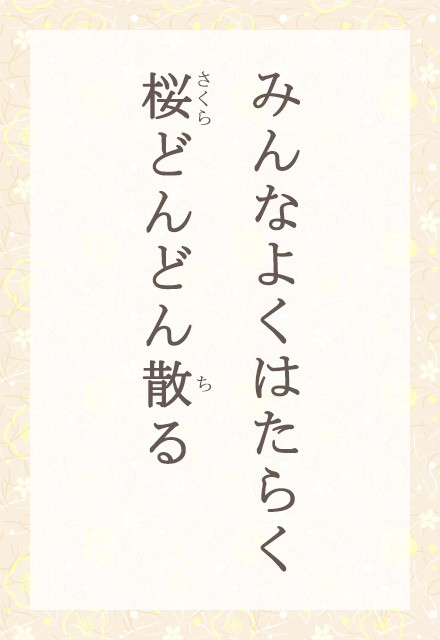 みんなよくはたらく
桜どんどん散る
さくら
ち